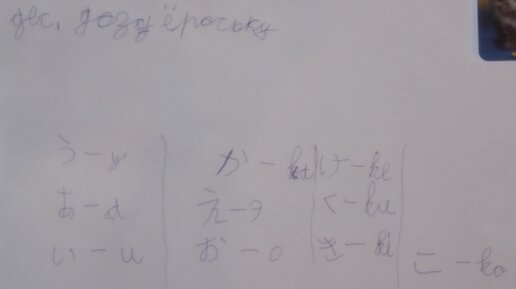 дес, дозо ёроську
う - у か - ka け - ke
あ - а え - э く - ku
い - и お - о き - ki こ - ko